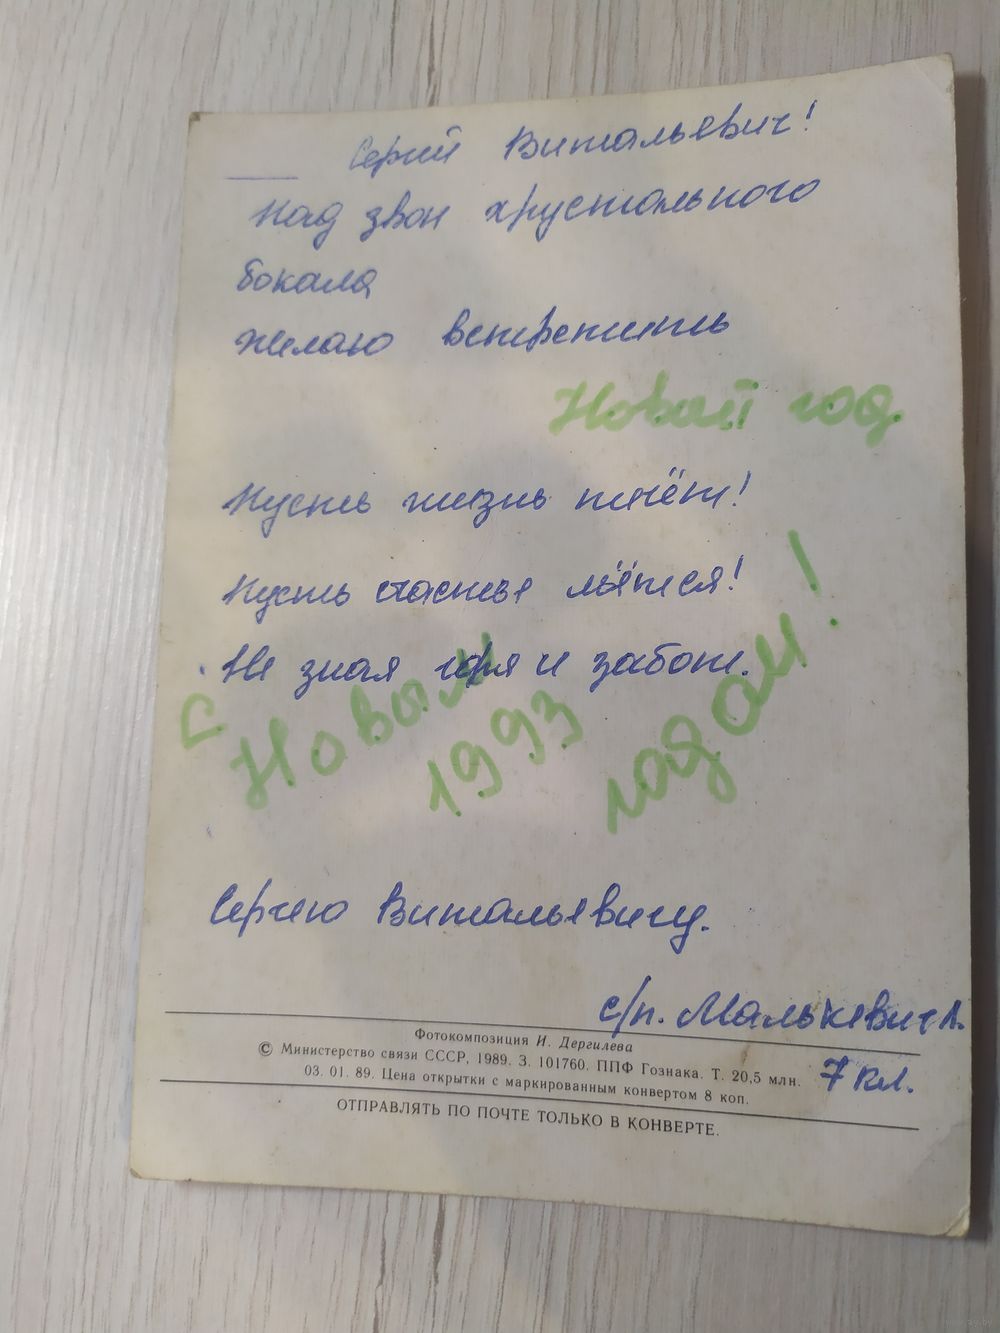 Сергей Витальевич!
Над звон хрустального
бокала
желаю встретить
Новый год.
Пусть жизнь течёт!
Пусть счастье льётся!
Не зная горя и забот.
С Новым
1993
годом!
Сергею Витальевичу.
с/п. Малькевич А.
7 кл.
Фотокомпозиция И. Дергилева
© Министерство связи СССР, 1989. З. 101760. ППФ Гознака. Т. 20,5 млн.
03. 01. 89. Цена открытки с маркированным конвертом 8 коп.
ОТПРАВЛЯТЬ ПО ПОЧТЕ ТОЛЬКО В КОНВЕРТЕ.